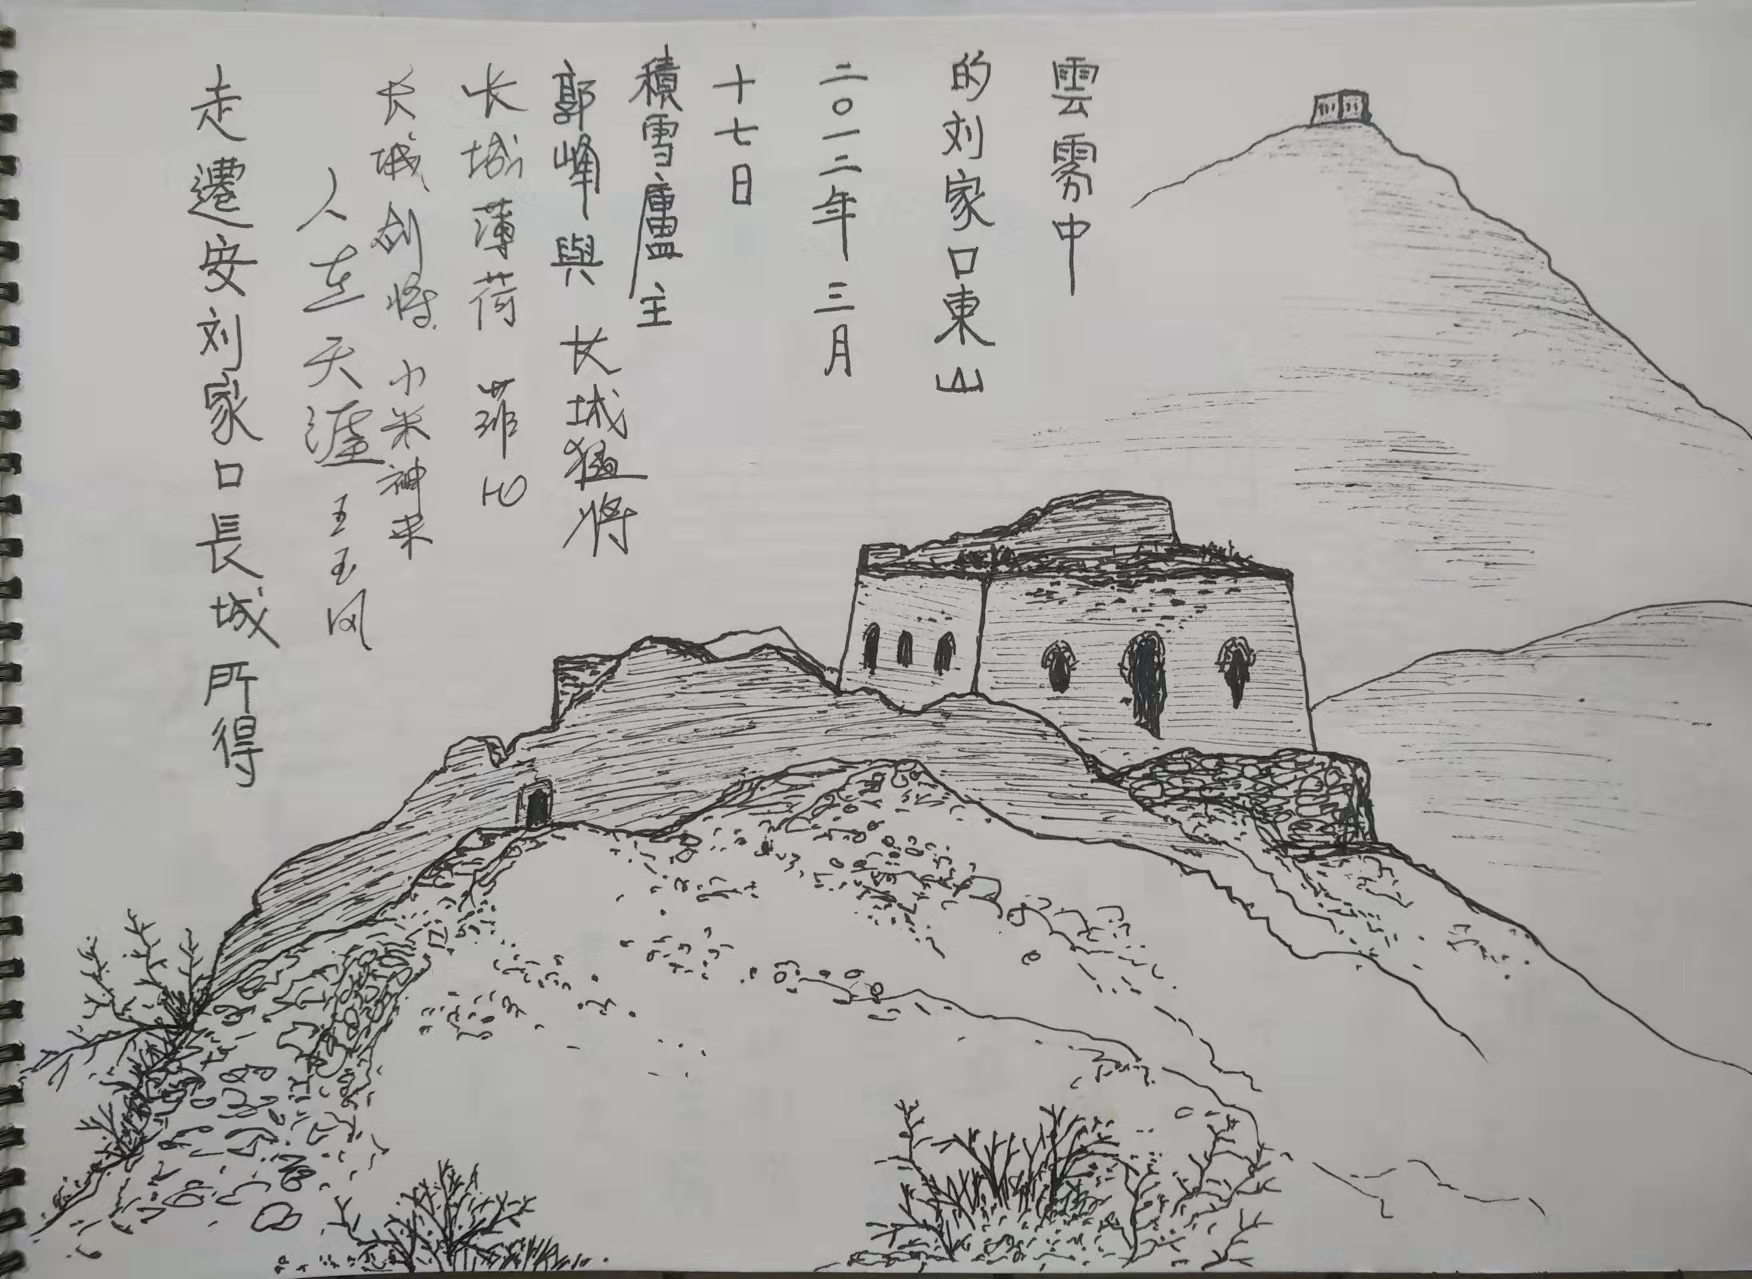 雲雾中
的刘家口東山
二〇一二年三月
十七日
積雪廬主
郭峰與长城猛将
长城薄荷 菲比
长城剑将 小米神来
人在天涯 王玉凤
走遷安刘家口長城所得